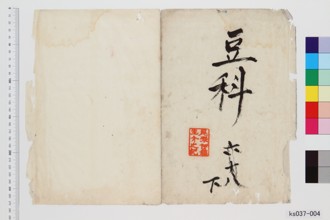 豆科
六十八
下
ko037-004